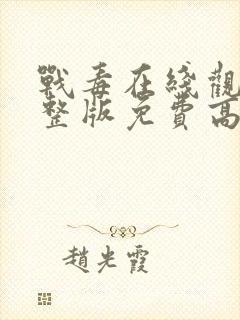 戰毒在綫觀
整版免費高
趙光霞